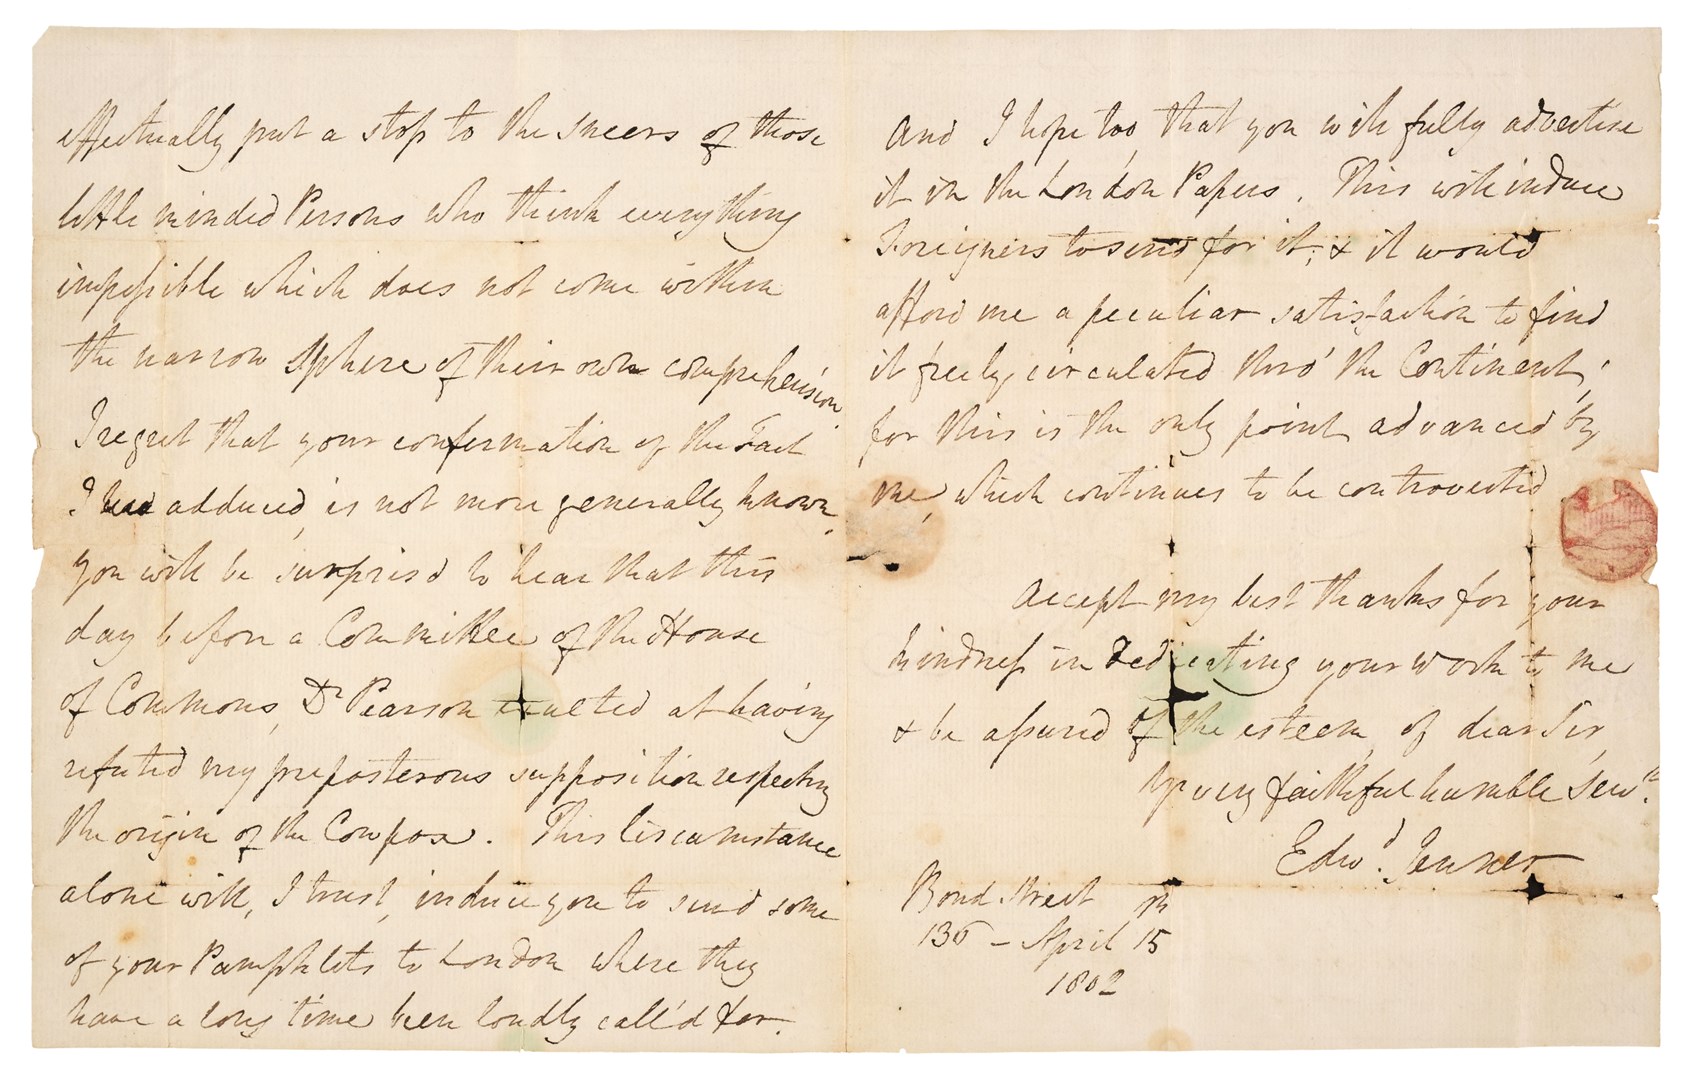 effectually put a stop to the sneers of those
little minded Persons who think everything
impossible which does not come within
the narrow Sphere of their own comprehension.
I regret that your confirmation of the Fact
I had adduced, is not more generally known.
you will be surprised to hear that this
day before a Committee of the House
of Commons, Dr Pearson exulted at having
refuted my preposterous supposition respecting
the origin of the Cowpox. This Circumstance
alone will, I trust, induce you to send some
of your Pamphlets to London where they
have a long time been loudly call'd for.
And I hope too, that you will fully advertise
it in the London Papers. This will induce
Foreigners to send for it, & it would
afford me a peculiar satisfaction to find
it freely circulated thro' the Continent;
for this is the only point advanced by
me, which continues to be controverted
Accept my best thanks for your
kindness in Dedicating your Work to me
& be assured of the esteem of dear Sir,
yr very faithful humble Servt.
Edwd. Jenner
Bond Street
136 - April 15th
1802